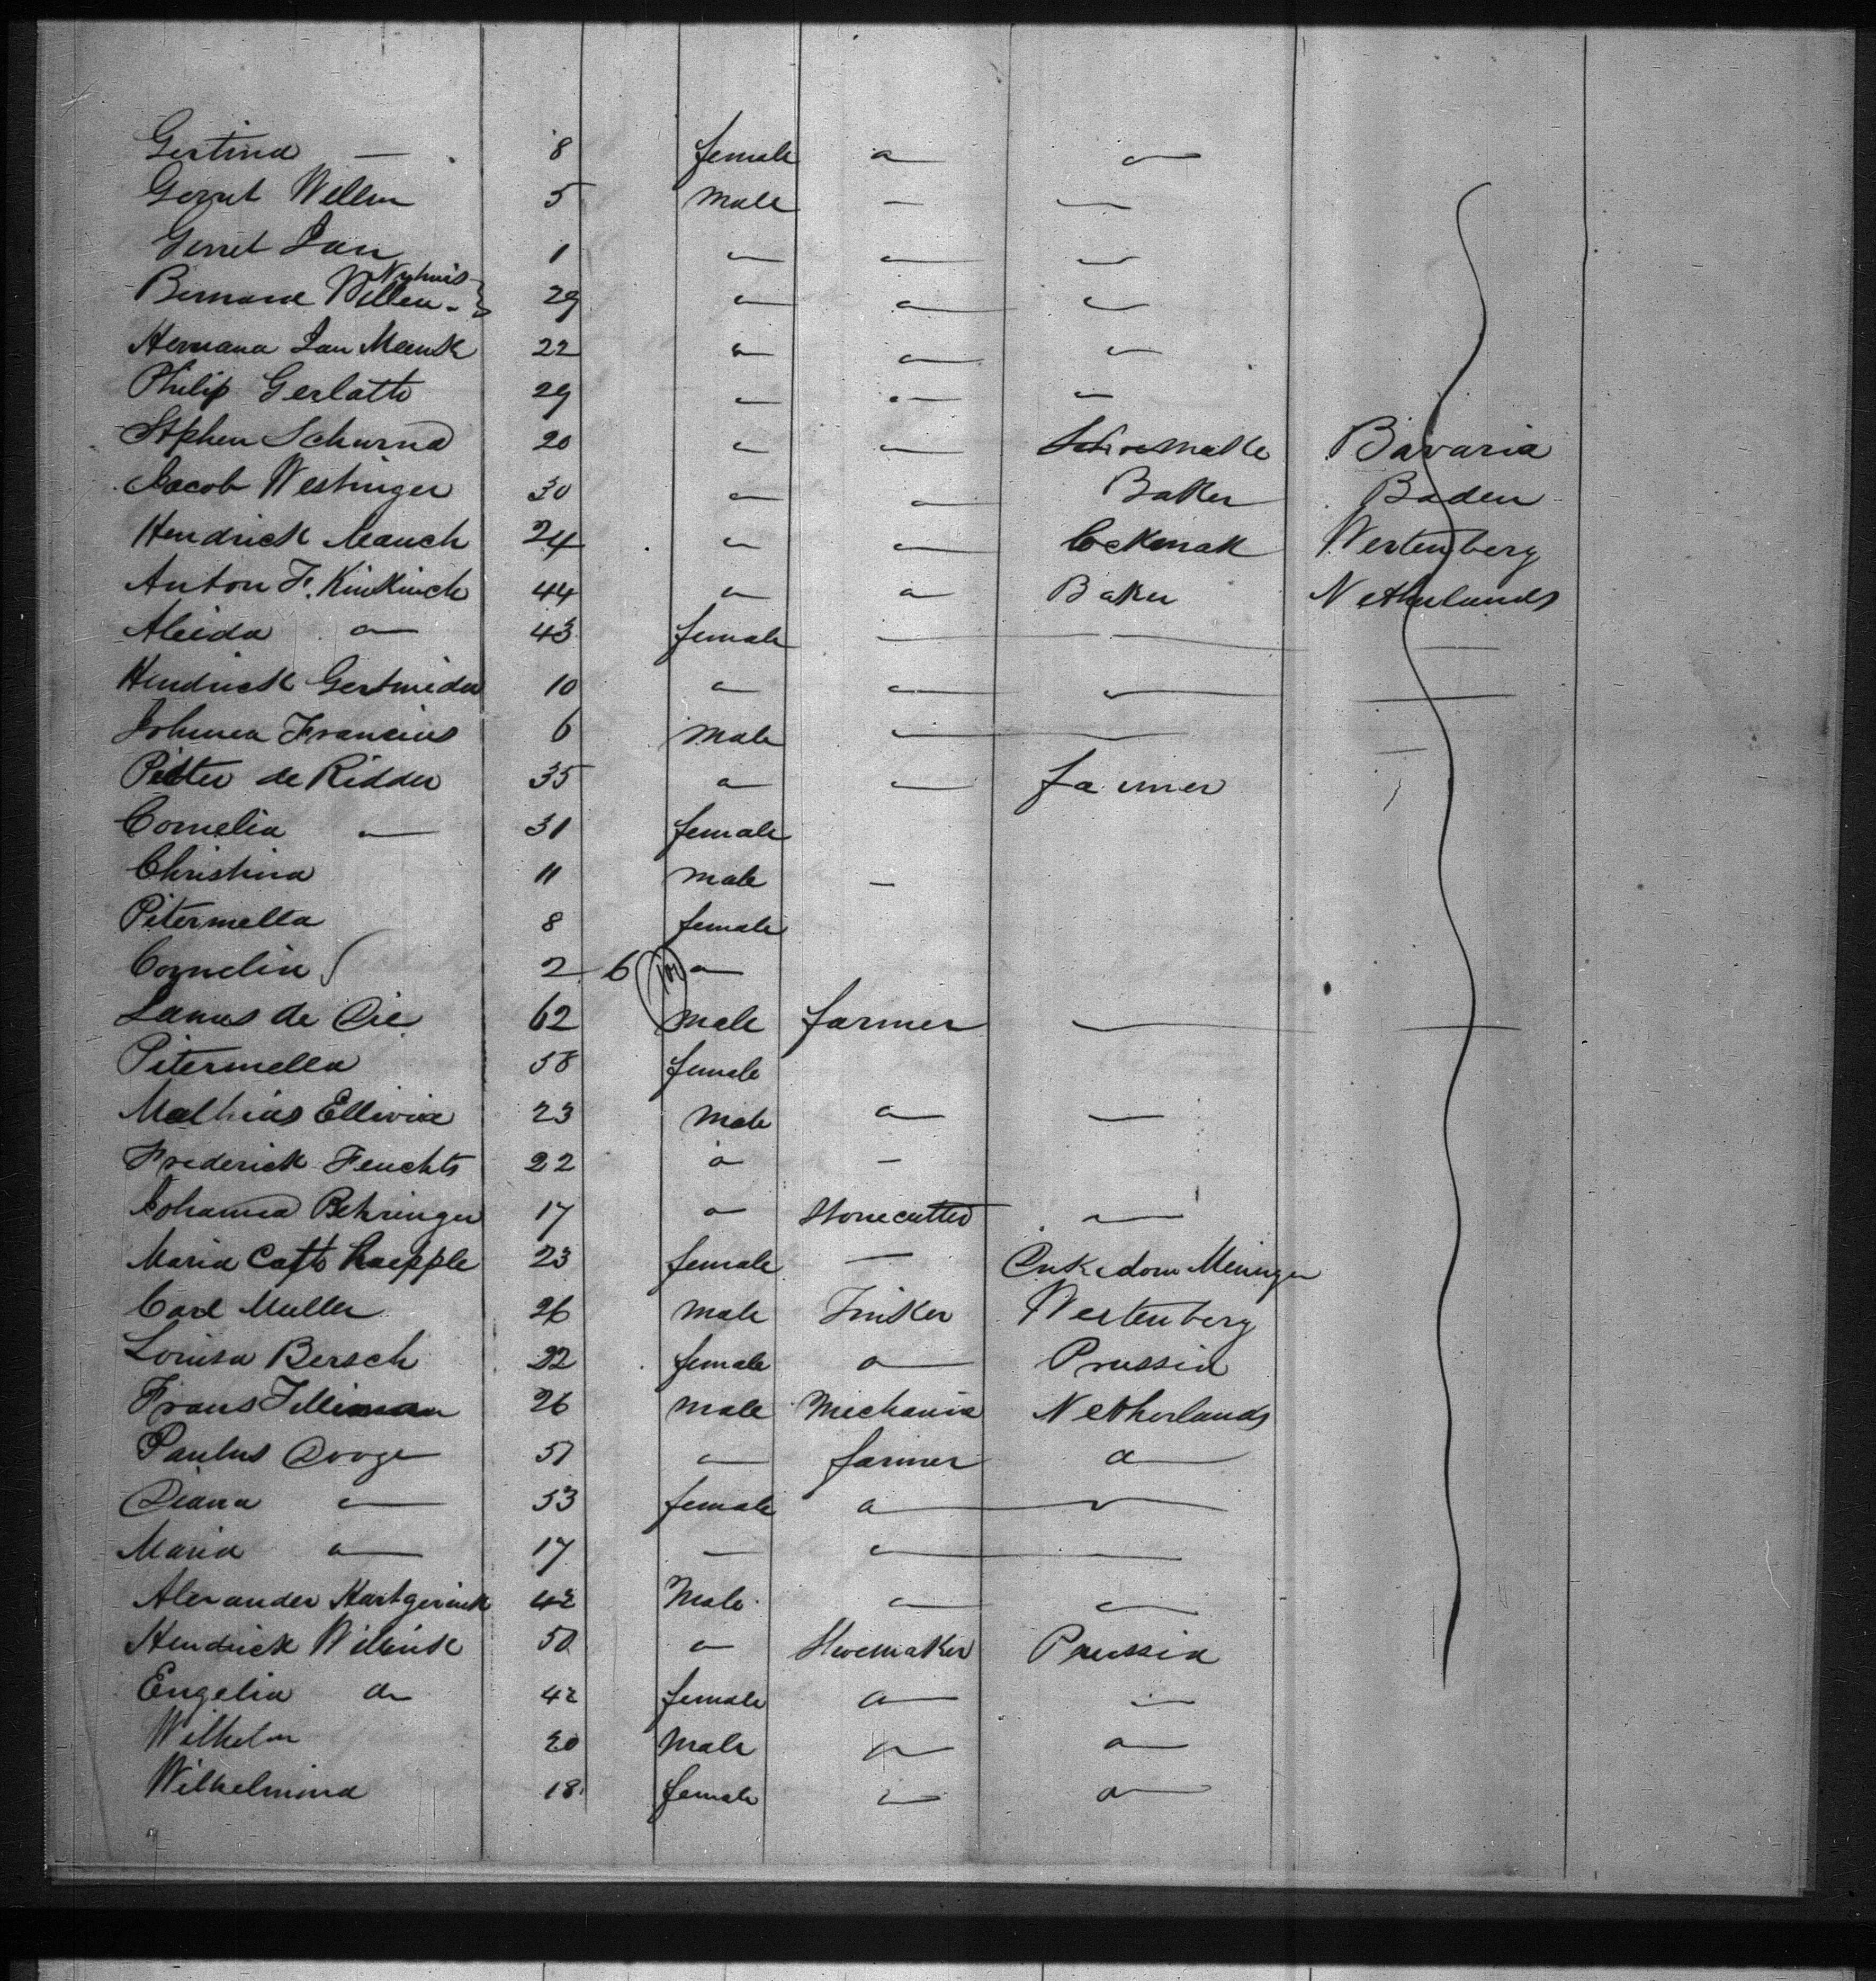 Gertina — 8 female " "
Gerrit Willem 5 male — —
Gerret Jan 1 " " "
Nyhuis
Bernard Willem - } 29 " " "
Hermana Jan Meenk 22 " " "
Philip Gerlatto 29 " " "
Stphen Schurna 20 " " Schoemake Bavaria
Jacob Westinger 30 " " Baker Baden
Hendrick Mauch 24 " " Cockmak Wertenberg
Anton F. Kinkinck 44 " " Baker Netherlands
Aleida " 43 female — — —
Hendrick Gertruida 10 " " " —
Johanna Francius 6 male " —
Pieter de Ridder 35 " " farmer
Cornelia — 31 female
Christina 11 male —
Pitermella 8 female
Cornelia 2 6 m "
Lanus de Die 62 male farmer — —
Pitermella 58 female
Mathias 23 male " —
Frederick Feuchts 22 " —
Johanna Behringer 17 " Stonecutter "
Maria Cath Kaepple 23 female — Meininger
Carl Muller 26 male Tinker Wertenberg
Louisa Bersch 22 female " Prussia
Frans Tilliman 26 male Mechanic Netherlands
Paulus Dooge 51 " farmer "
Diana " 53 female " "
Maria " 17 — "
Alexander Hartgerink 42 Male " "
Hendrick Wilsink 50 " Shoemaker Prussia
Engelia do 42 female " "
Wilhelm 20 Male " "
Wilhelmina 18 female " "